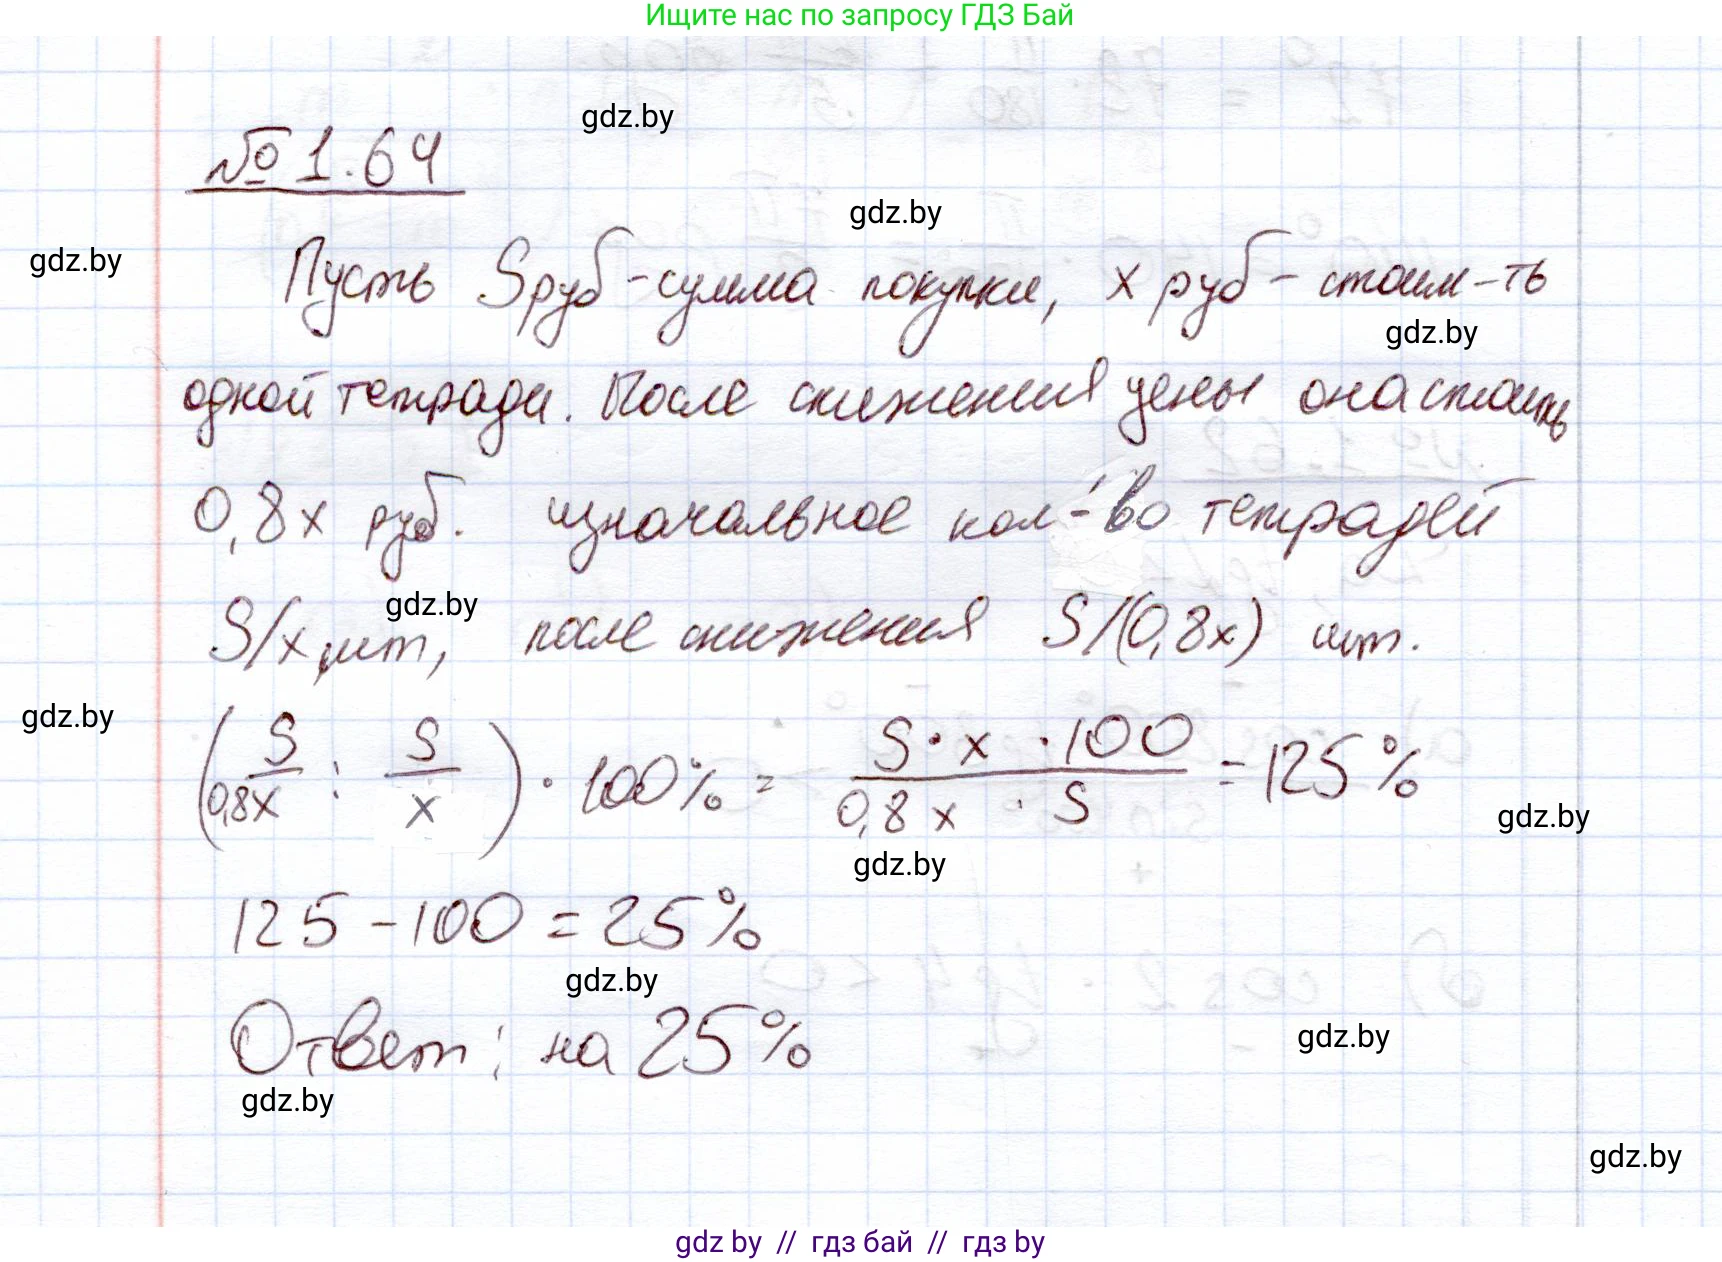 Ищите нас по запросу ГДЗ Бай
gdz.by
№ 1.64
gdz.by
gdz.by
Пусть S руб - сумма покупки, x руб - стоим-ть
gdz.by
одной тетради. После снижения цены она стоить
0,8x руб. изначальное кол-во тетрадей
gdz.by
S/x шт, после снижения S/(0,8x) шт.
gdz.by
(S/0,8x : S/x) · 100% = S · x · 100 / 0,8 x · S = 125%
gdz.by
gdz.by
125 - 100 = 25%
gdz.by
Ответ: на 25%
gdz.by
gdz.by
gdz.by
gdz by // гдз бай // гдз by